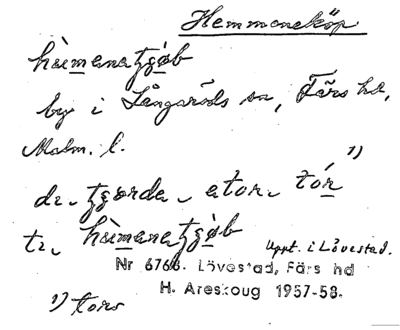 Hemmeneköp
hèmenatjǿb
by i Långaröds sn, Färs hd,
Malm. l.
de tjørde ator tór 1)
te hèmenatjǿb
Uppt. i Lövestad.
Nr 6766. Lövestad, Färs hd
H. Areskoug 1957-58.
1) tors